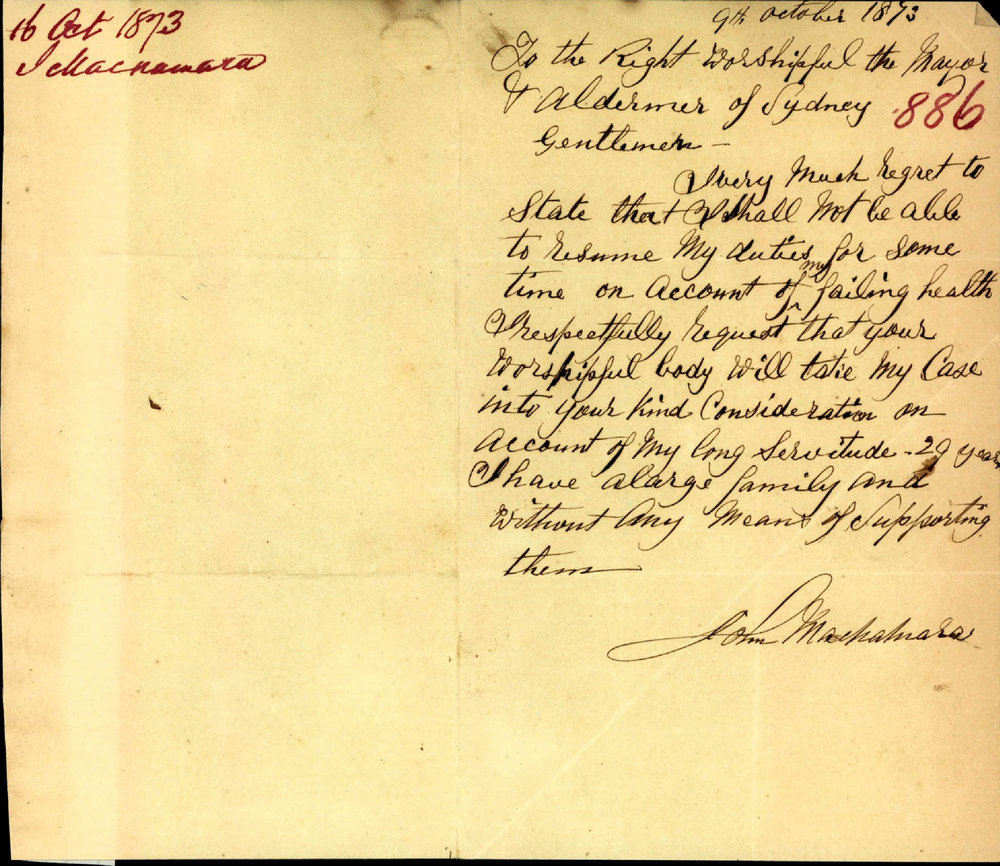 16 Oct 1873
J Macnamara
9th October 1873
To the Right Worshipful the Mayor
& Aldermen of Sydney
886
Gentlemen –
I very Much regret to
State that I Shall Not be able
to resume My duties for some
time on Account of my failing health
I respectfully request that your
Worshipful body Will take My Case
into your Kind Consideration on
Account of My long Servitude - 29 years
I have a large family and
Without Any Means of Supporting
them
John Macnamara